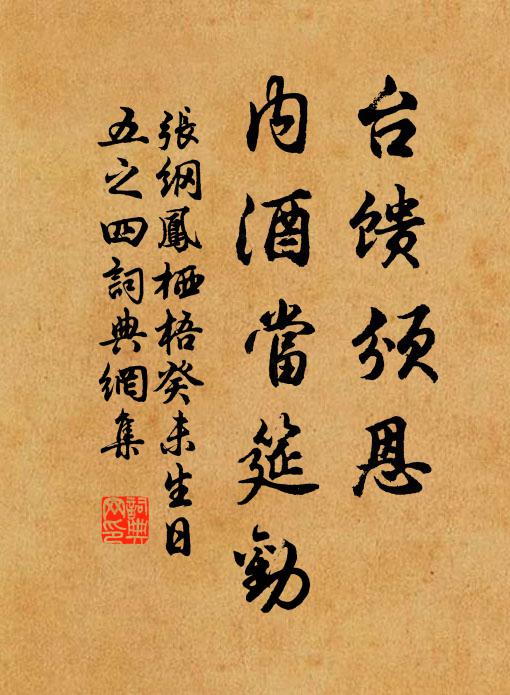 台馈颁恩
内酒當筵勸
張綱鳳栖梧癸未生日
五之四詞典網集
詞典网印